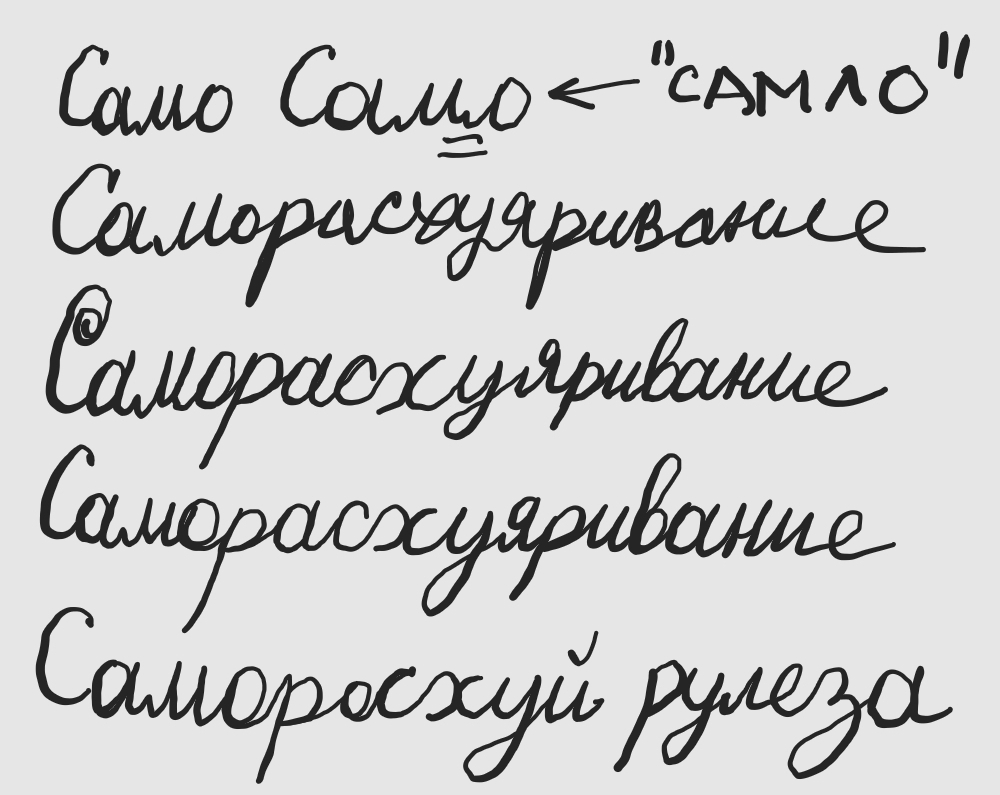 Само Само ← "САМЛО"
Саморасхуяривание
Саморасхуяривание
Саморасхуяривание
Саморосхуй рулеза